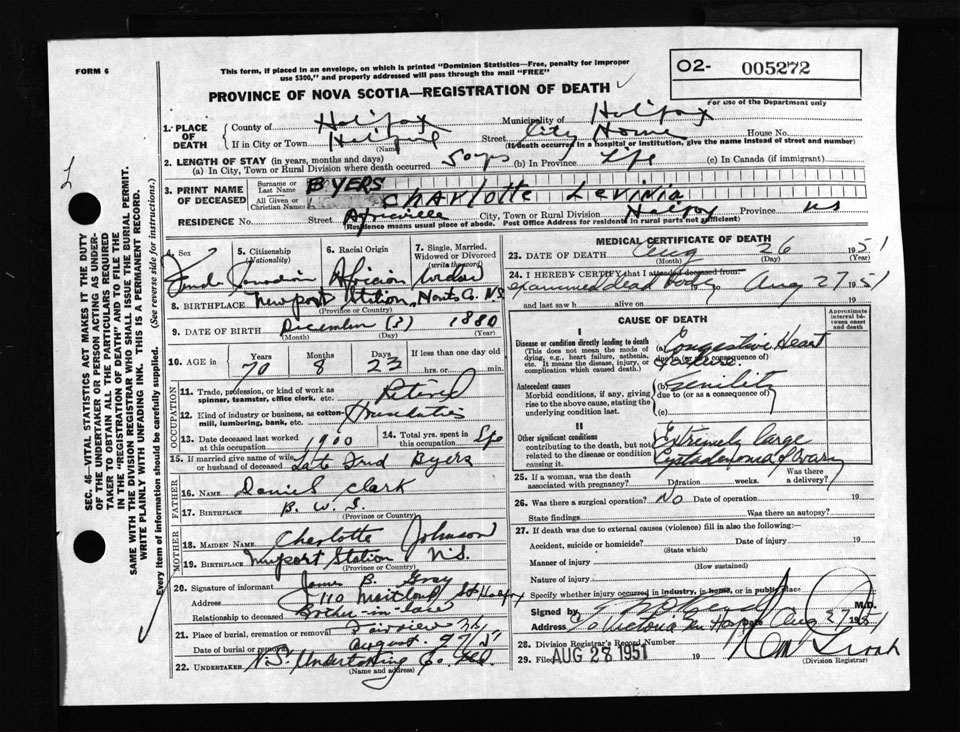 FORM 6
This form, if placed in an envelope, on which is printed "Dominion Statistics—Free, penalty for improper
use $300," and properly addressed will pass through the mail "FREE"
O2- 005272
For use of the Department only
PROVINCE OF NOVA SCOTIA—REGISTRATION OF DEATH
1. PLACE OF DEATH
County of Halifax Municipality of Halifax
If in City or Town (Name) Street City Home House No.
(If death occurred in a hospital or institution, give the name instead of street and number)
2. LENGTH OF STAY (in years, months and days)
(a) In City, Town or Rural Division where death occurred 50 yrs (b) In Province Life (c) In Canada (if immigrant)
3. PRINT NAME OF DECEASED
Surname or Last Name BYERS
All Given or Christian Names Charlotte Levinia
RESIDENCE No. Street Africville City, Town or Rural Division Halifax Province NS
(Residence means usual place of abode. Post Office Address for residents in rural parts not sufficient)
4. Sex Female
5. Citizenship (Nationality) Canadian
6. Racial Origin African
7. Single, Married, Widowed or Divorced (write the word) Widow
8. BIRTHPLACE Newport Station, Hants Co. NS
(Province or Country)
9. DATE OF BIRTH December (3) 1880
(Month) (Day) (Year)
10. AGE in Years Months Days If less than one day old
70 8 23 hrs. or min.
OCCUPATION
11. Trade, profession, or kind of work as spinner, teamster, office clerk, etc. Retired
12. Kind of industry or business, as cotton-mill, lumbering, bank, etc.
13. Date deceased last worked at this occupation 1900
14. Total yrs. spent in this occupation
15. If married give name of wife or husband of deceased Late Fred Byers
FATHER
16. NAME Daniel Clark
17. BIRTHPLACE B. W. I.
(Province or Country)
MOTHER
18. MAIDEN NAME Charlotte Johnson
19. BIRTHPLACE Newport Station N.S.
(Province or Country)
20. Signature of informant James B. Gray
Address 110 Maitland St Halifax
Relationship to deceased Brother-in-law
21. Place of burial, cremation or removal Fairview
Date of burial or removal August
22. UNDERTAKER N.S. Undertaking Co. Ltd.
(Name and address)
MEDICAL CERTIFICATE OF DEATH
23. DATE OF DEATH Aug 26 1951
(Month) (Day) (Year)
24. I HEREBY CERTIFY that I attended deceased from:
examined dead body Aug 27 1951
and last saw h alive on 19
CAUSE OF DEATH
Approximate interval between onset and death
I
Disease or condition directly leading to death
(This does not mean the mode of dying, e.g., heart failure, asthenia, etc. It means the disease, injury, or complication which caused death.)
(a) Congestive Heart Failure.
due to (or as a consequence of)
Antecedent causes
Morbid conditions, if any, giving rise to the above cause, stating the underlying condition last.
(b) senility
due to (or as a consequence of)
(c)
II
Other significant conditions
contributing to the death, but not related to the disease or condition causing it.
Extremely large
Cystadenoma of Ovary
25. If a woman, was the death associated with pregnancy? Duration weeks. Was there a delivery?
26. Was there a surgical operation? No Date of operation 19
State findings Was there an autopsy?
27. If death was due to external causes (violence) fill in also the following:—
Accident, suicide or homicide? Date of injury 19
(State which)
Manner of injury
(How sustained)
Nature of injury
Specify whether injury occurred in industry, in home, or in public place
Signed by M.D.
Address To Victoria Gen Hosp Date Aug 27 1951
28. Division Registrar's Record Number
29. Filed AUG 28 1951 19
(Division Registrar)
SEC. 46 VITAL STATISTICS ACT MAKES IT THE DUTY
OF THE UNDERTAKER OR PERSON ACTING AS UNDER-
TAKER TO OBTAIN ALL THE PARTICULARS REQUIRED
IN THE "REGISTRATION OF DEATH" AND TO FILE THE
SAME WITH THE DIVISION REGISTRAR WHO SHALL ISSUE THE BURIAL PERMIT.
WRITE PLAINLY WITH UNFADING INK. THIS IS A PERMANENT RECORD.
Every item of information should be carefully supplied. (See reverse side for instructions.)